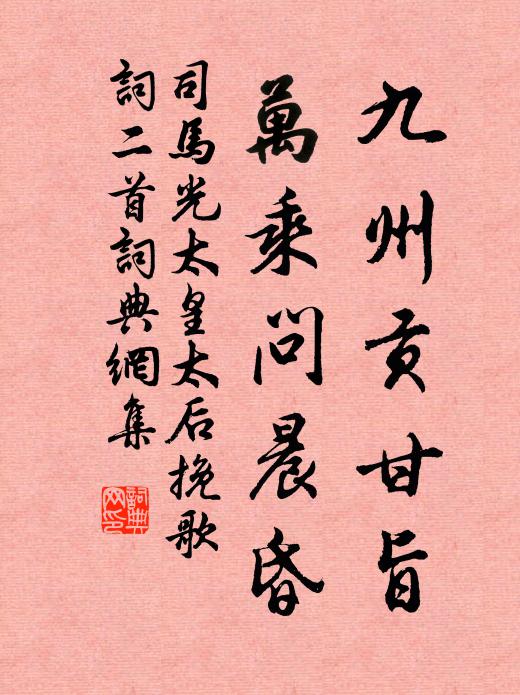 九州貢甘旨
萬乘問晨昏
司馬光太皇太后挽歌
詞二首詞典網集
詞典网印